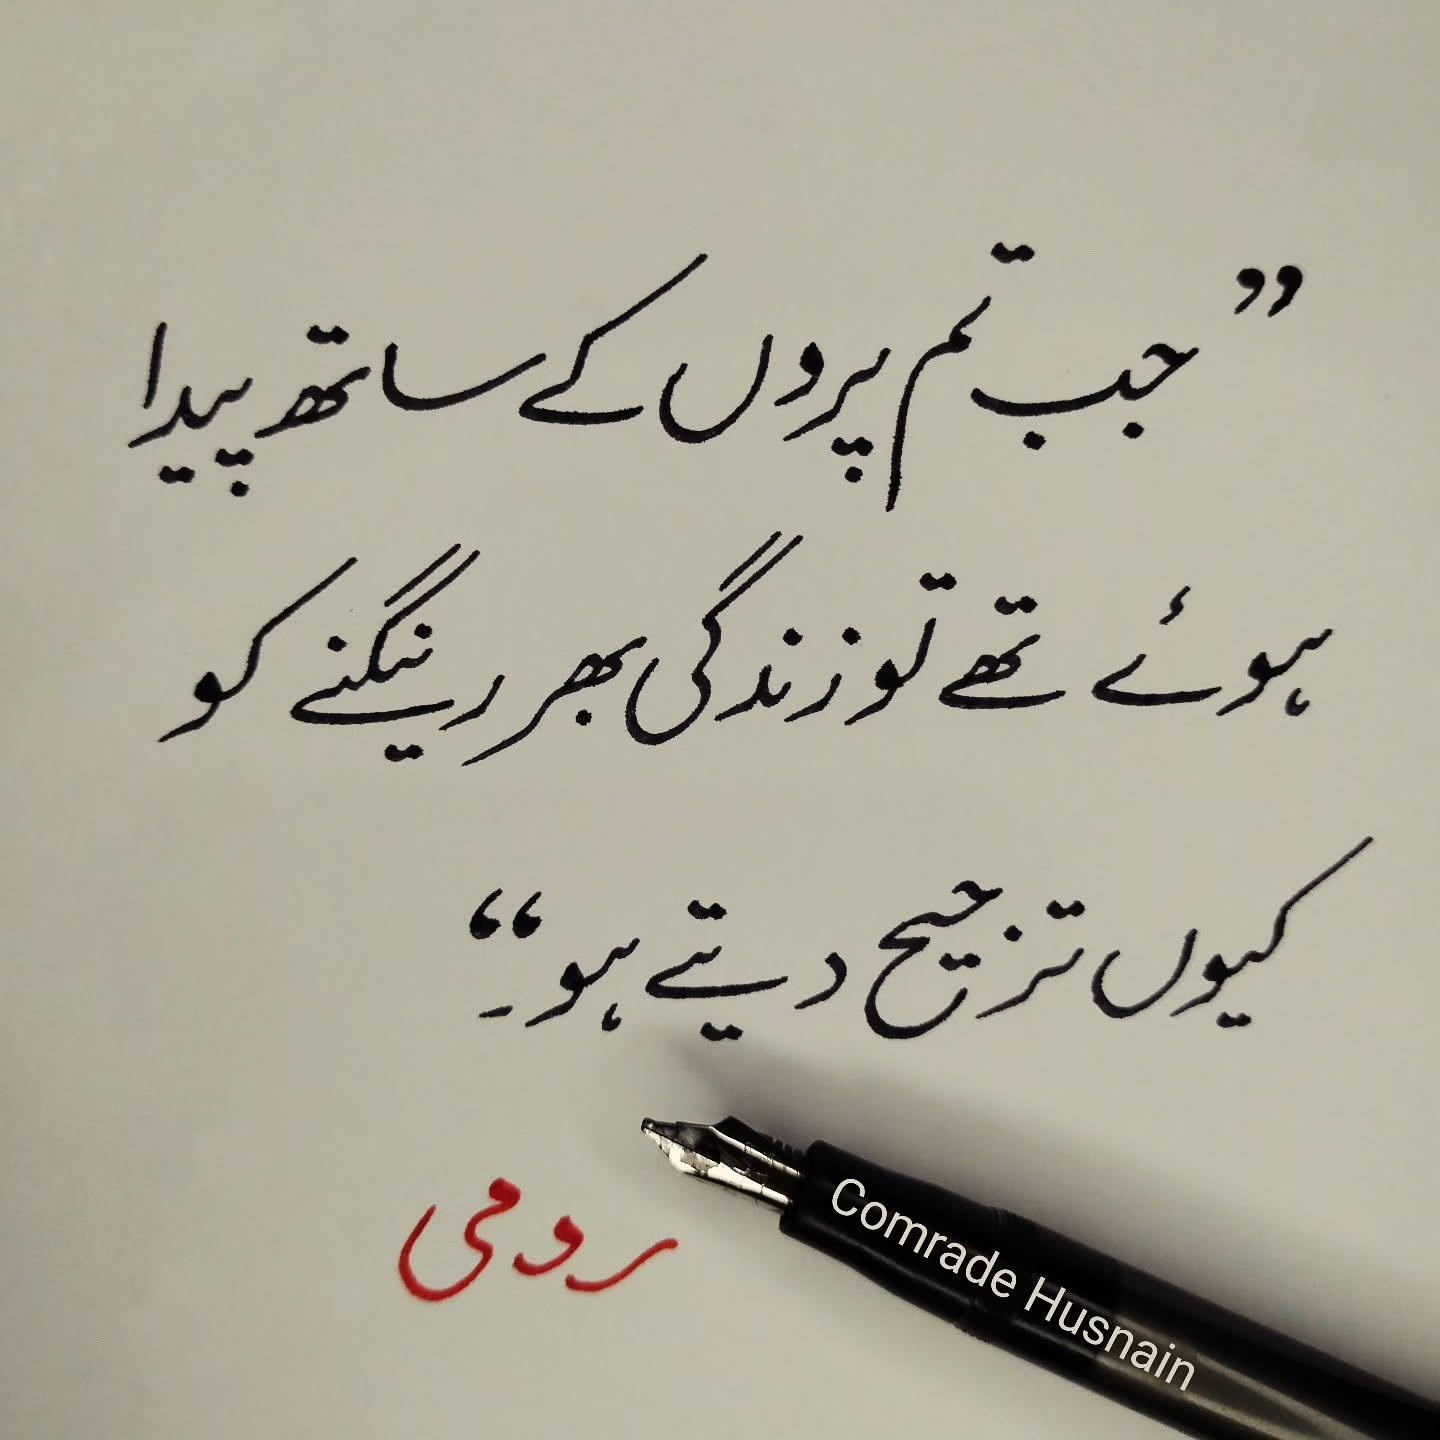 ”جب تم پروں کے ساتھ پیدا
ہوئے تھے تو زندگی بھر رینگنے کو
کیوں ترجیح دیتے ہو“۔
رومی
Comrade Husnain